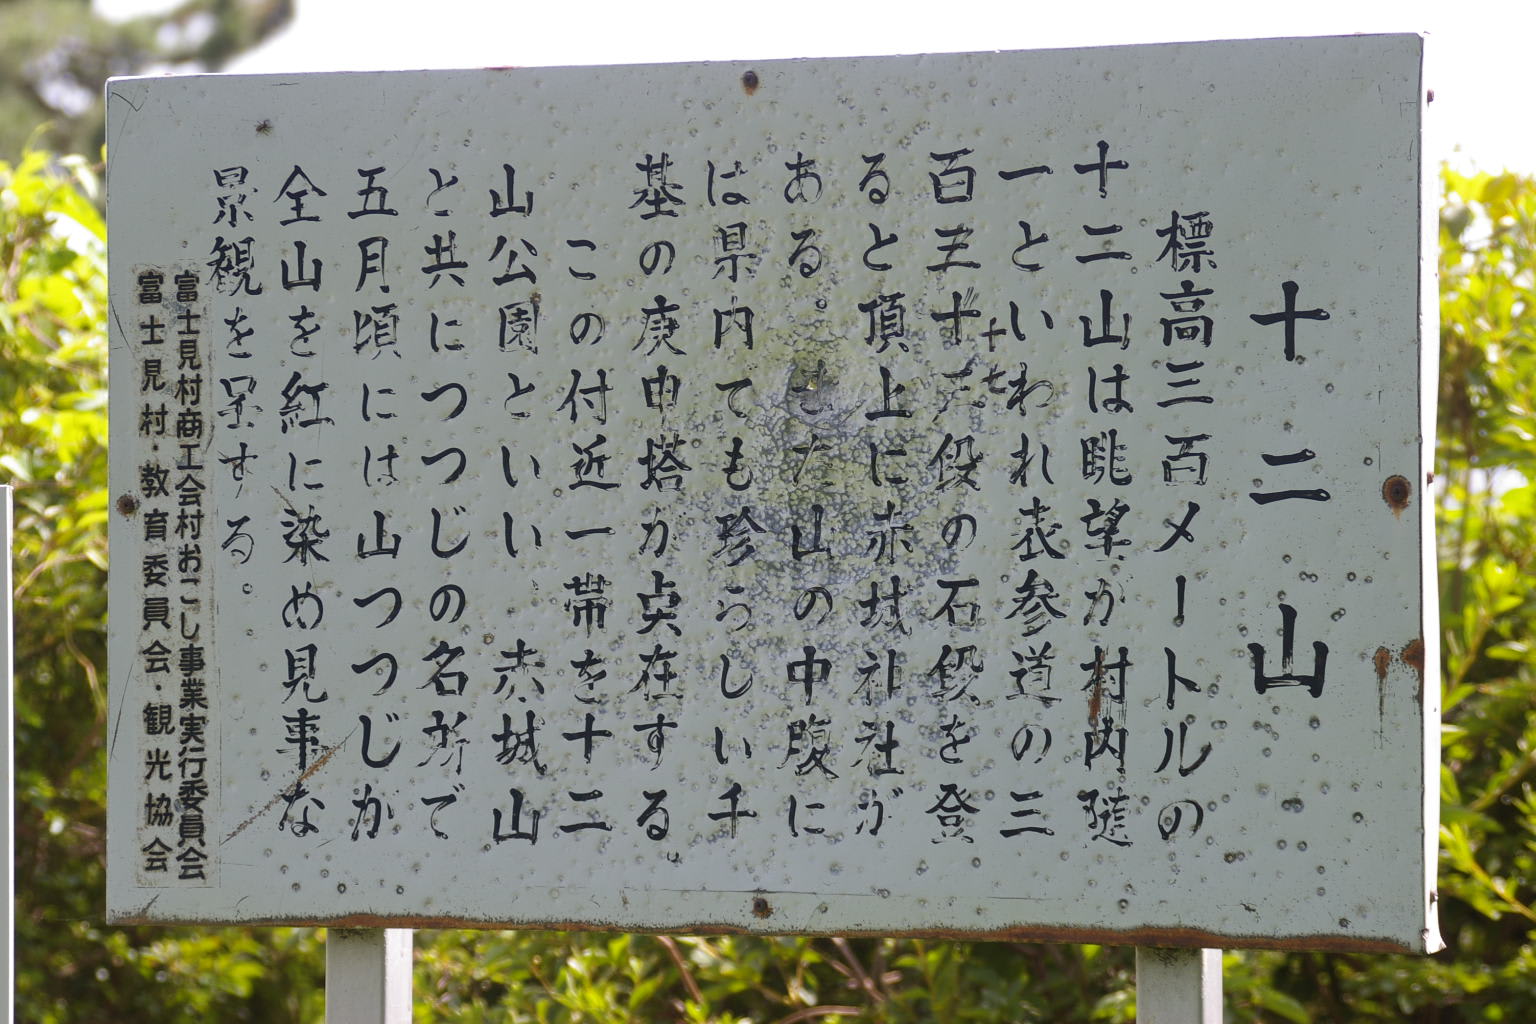 十二山
標高三百メートルの
十二山は眺望が村内随
一といわれ表参道の三
百五十三段の石段を登
十七
ると頂上に赤城神社が
ある。また山の中腹に
は県内でも珍らしい千
基の庚申塔が点在する。
この付近一帯を十二
山公園といい赤城山
と共につつじの名所で
五月頃には山つつじが
全山を紅に染め見事な
景観を呈する。
富士見村商工会村おこし事業実行委員会
富士見村・教育委員会・観光協会